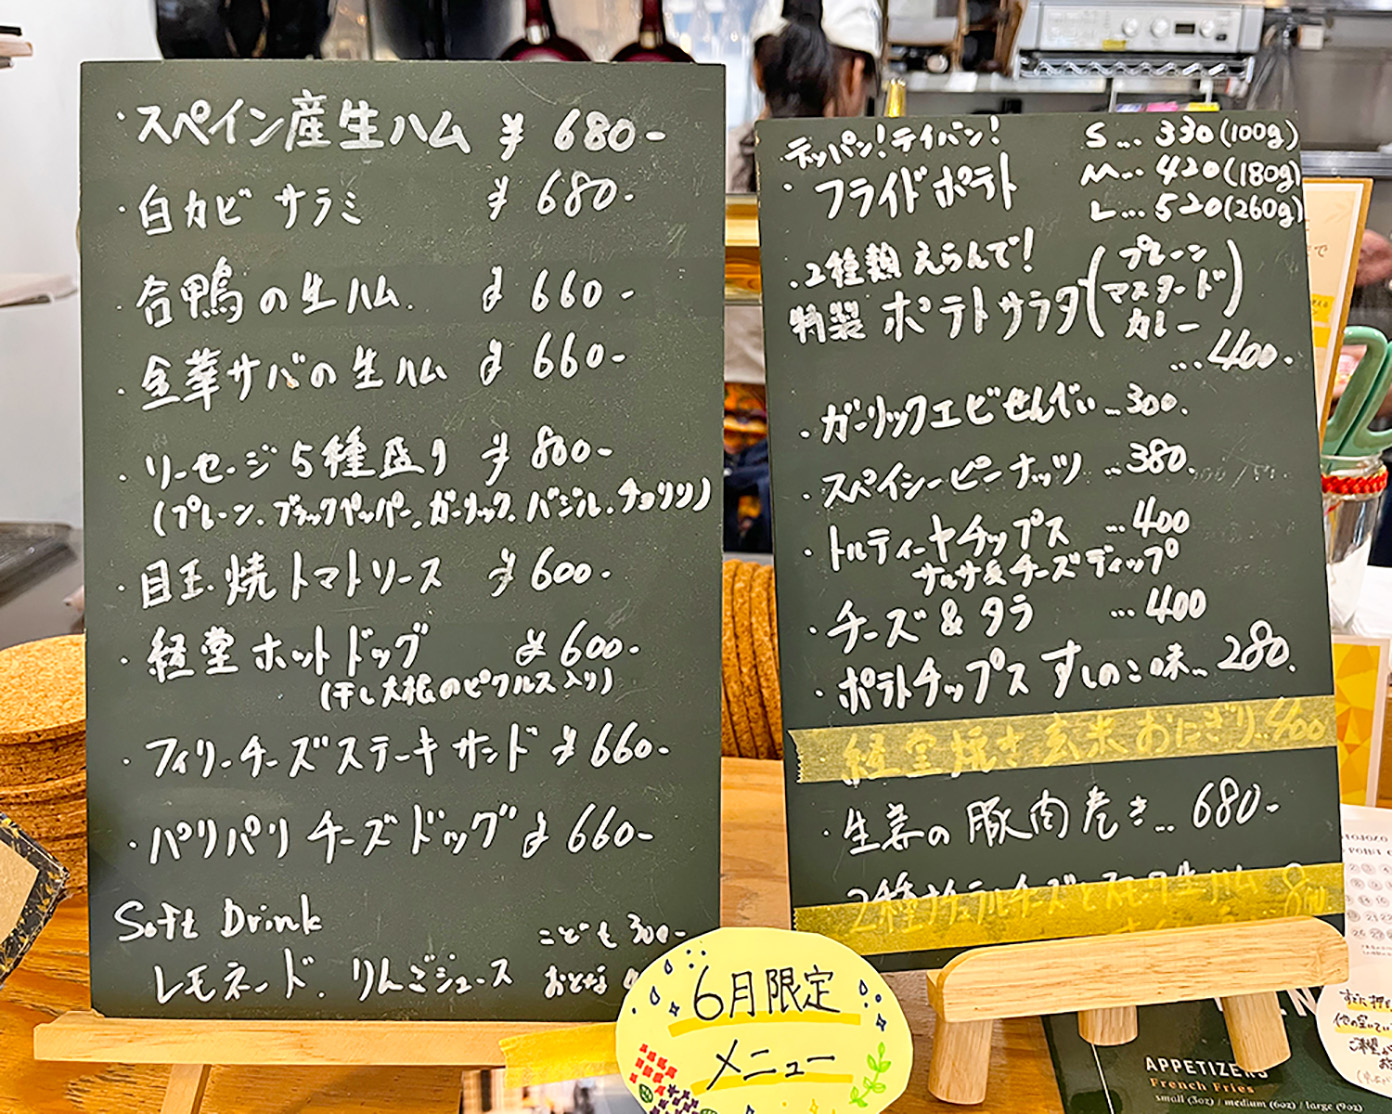 ・スペイン産生ハム ¥680-
・白カビサラミ ¥680-
・合鴨の生ハム ¥660-
・金華サバの生ハム ¥660-
・ソーセージ5種盛り ¥800-
(プレーン、ブラックペッパー、ガーリック、バジル、チョリソ)
・目玉焼トマトソース ¥600-
・経堂ホットドッグ ¥600-
(干し大根のピクルス入り)
・フィリーチーズステーキサンド ¥660-
・パリパリチーズドッグ ¥660-
Soft Drink
こども 300-
レモネード、りんごジュース おとな
テッパン!テイバン!
・フライドポテト
S... 330(100g)
M... 420(180g)
L... 520(260g)
・2種類えらんで!
特製 ポテトサラダ(プレーン
マスタード
カレー)
...400-
・ガーリックエビせんべい...300.
・スパイシーピーナッツ ...380.
・トルティーヤチップス ...400
サルサ&チーズディップ
・チーズ&タラ ...400
・ポテトチップス すしのこ味... 280.
経堂焼き玄米おにぎり..400
・生姜の豚肉巻き... 680-
6月限定
メニュー
APPETIZERS
French Fries
small (3oz) / medium (6oz) / large (9oz)